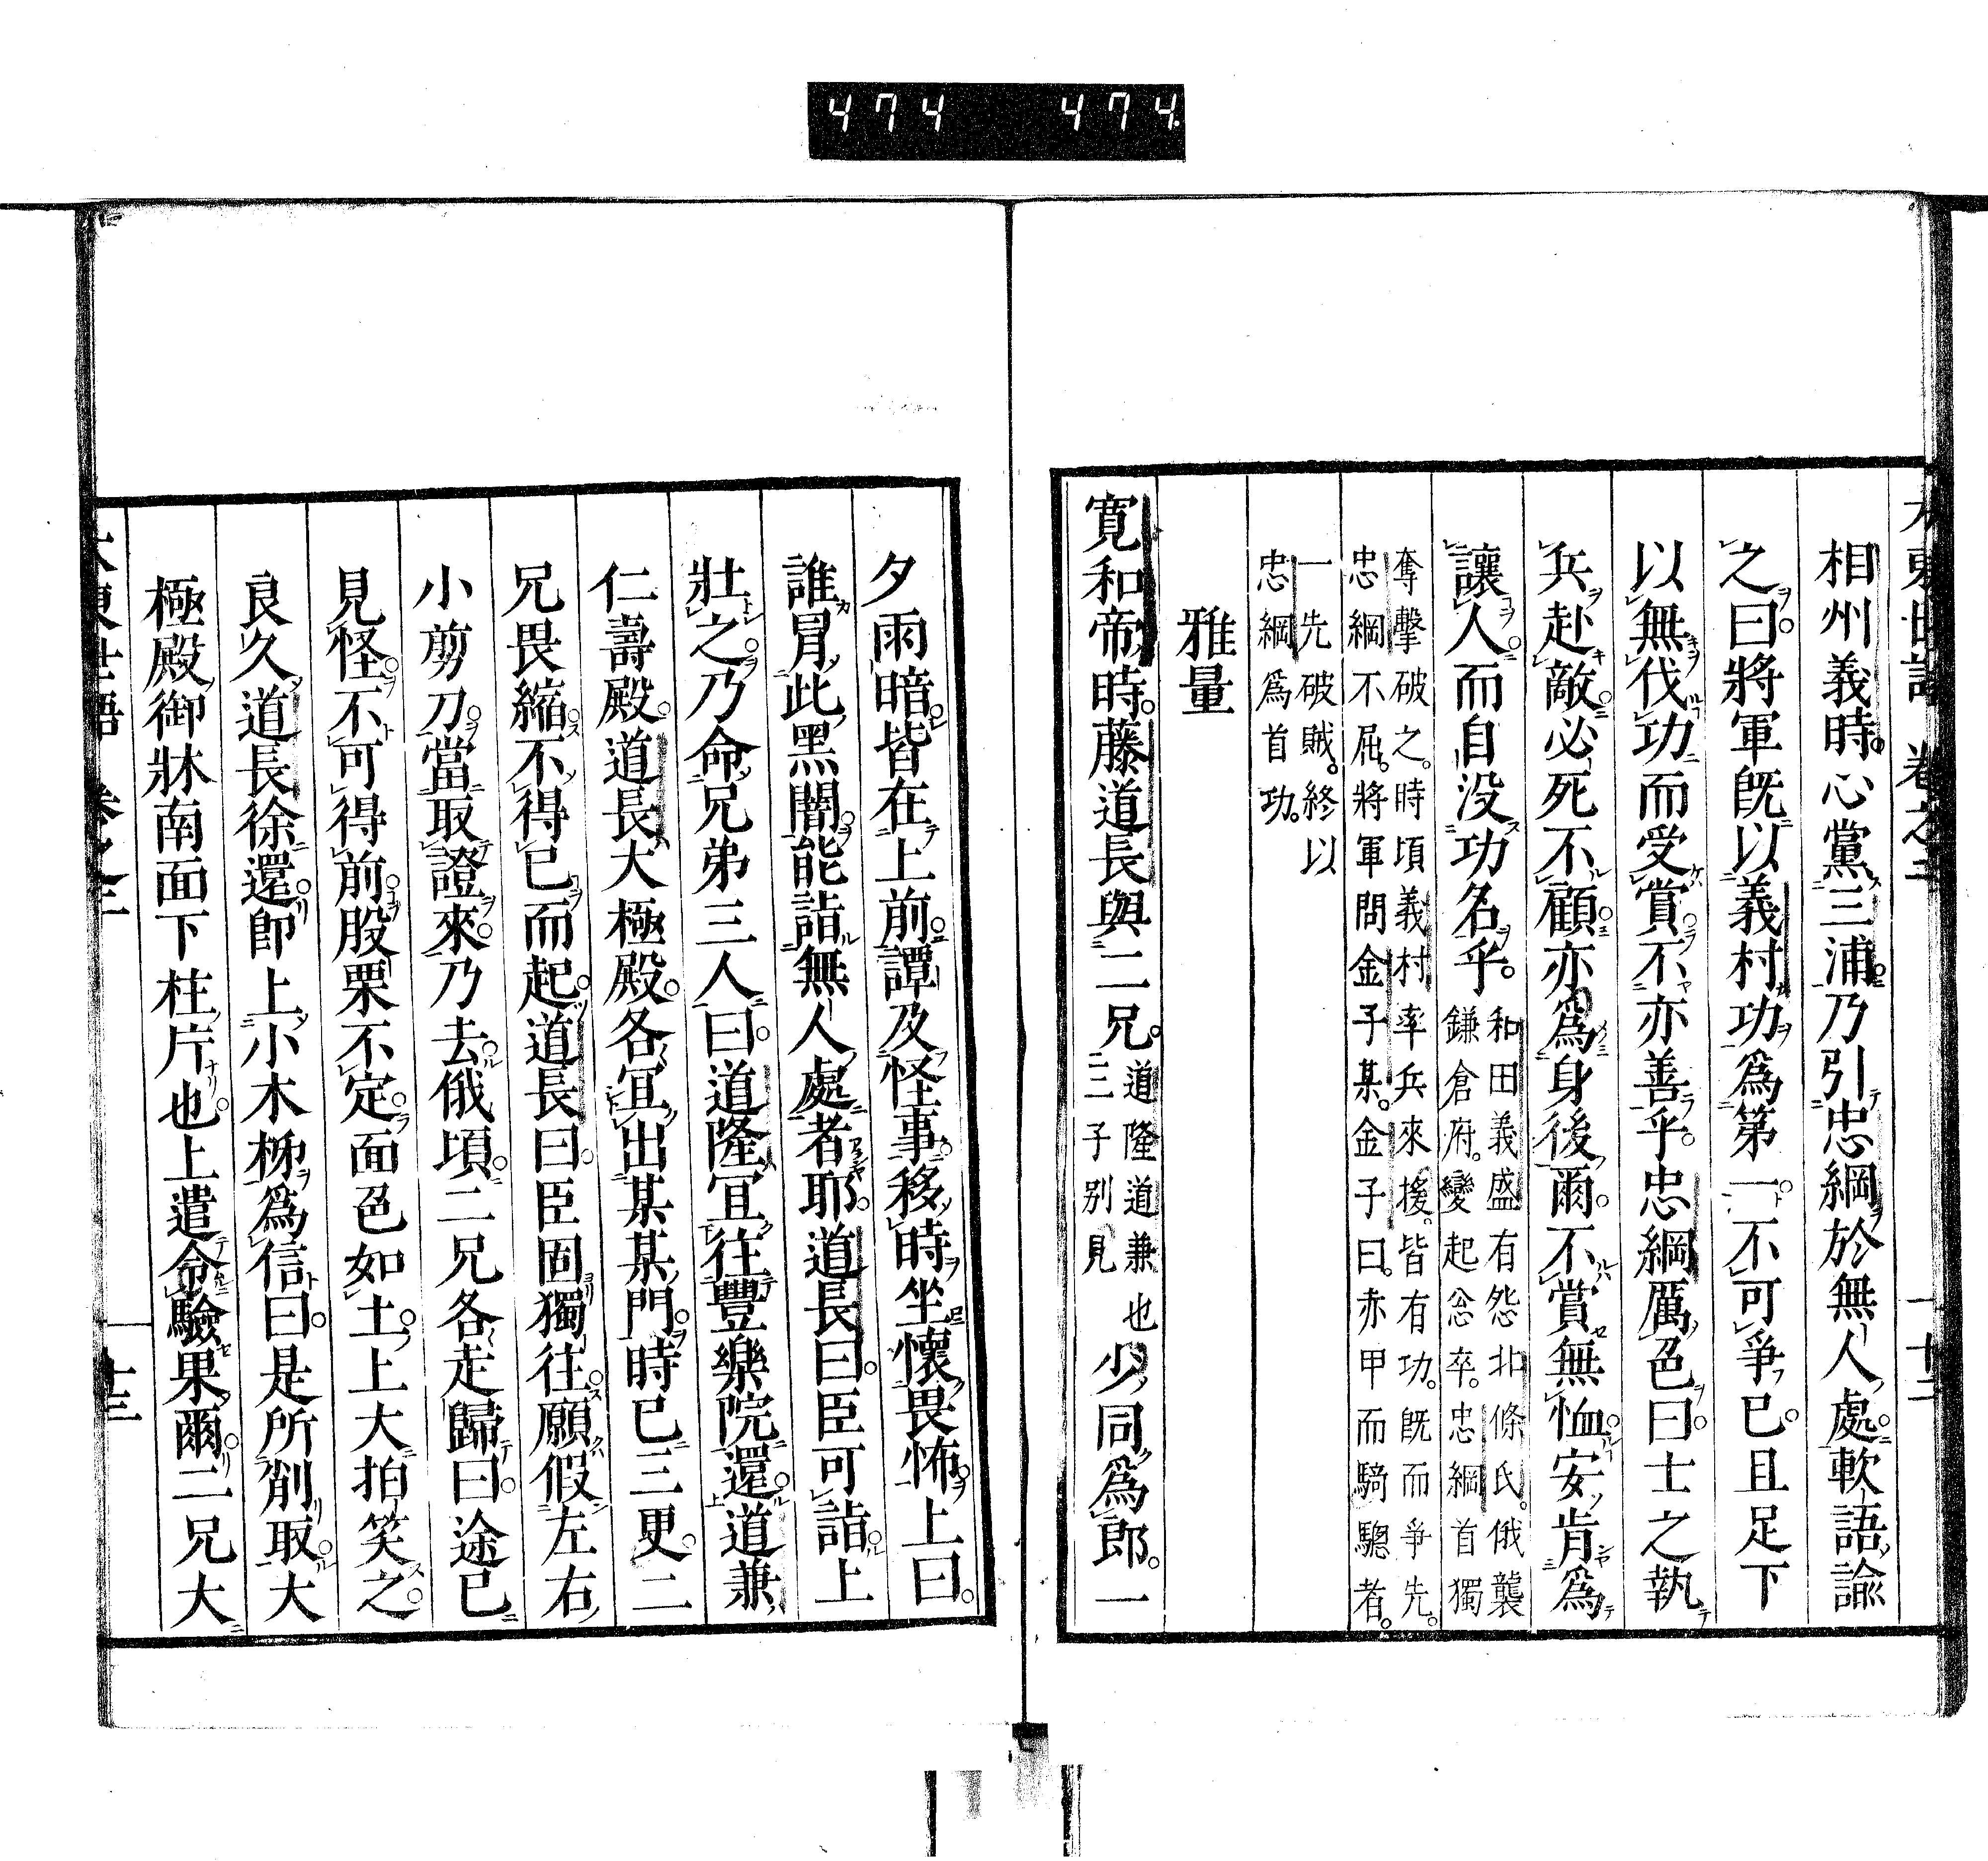 474 474
大東世語 卷之二 十二
相州義時。心黨三浦。乃引忠綱於無人處。軟語諭
之曰。將軍既以義村功爲第一。不可爭已。且足下
以無伐功而受賞。不亦善乎。忠綱厲色曰。士之執
兵赴敵。必死不顧。亦爲身後爾。不賞無恤。安肯爲
讓人。而自沒功名乎。
和田義盛有怨北條氏。俄襲
鎌倉府。變起忩卒。忠綱首獨
奪擊破之。時頃義村率兵來援。皆有功。既而爭先。
忠綱不屈。將軍問金子某。金子曰。赤甲而騎驄者。
一先破賊。終以
忠綱爲首功。
雅量
寬和帝時。藤道長與二兄。
道隆道兼也
二子別見
少同爲郎。一
夕雨暗。皆在上前。譚及怪事。移時坐懷畏怖。上曰。
誰冒此黑闇。能詣無人處者耶。道長曰。臣可詣。上
壯之。乃命兄弟三人曰。道隆宜往豐樂院還。道兼
仁壽殿。道長大極殿。各宜出某某門。時已三更。二
兄畏縮。不得已而起。道長曰。臣固獨往。願假左右
小剪刀。當取證來。乃去。俄頃。二兄各走歸曰。途已
見怪。不可得前。股栗不定。面色如土。上大拍笑之。
良久道長徐還。卽上小木柹爲信曰。是所削取。大
極殿御牀南面下柱片也。上遣令驗果爾。二兄大
大東世語 卷之二 十三